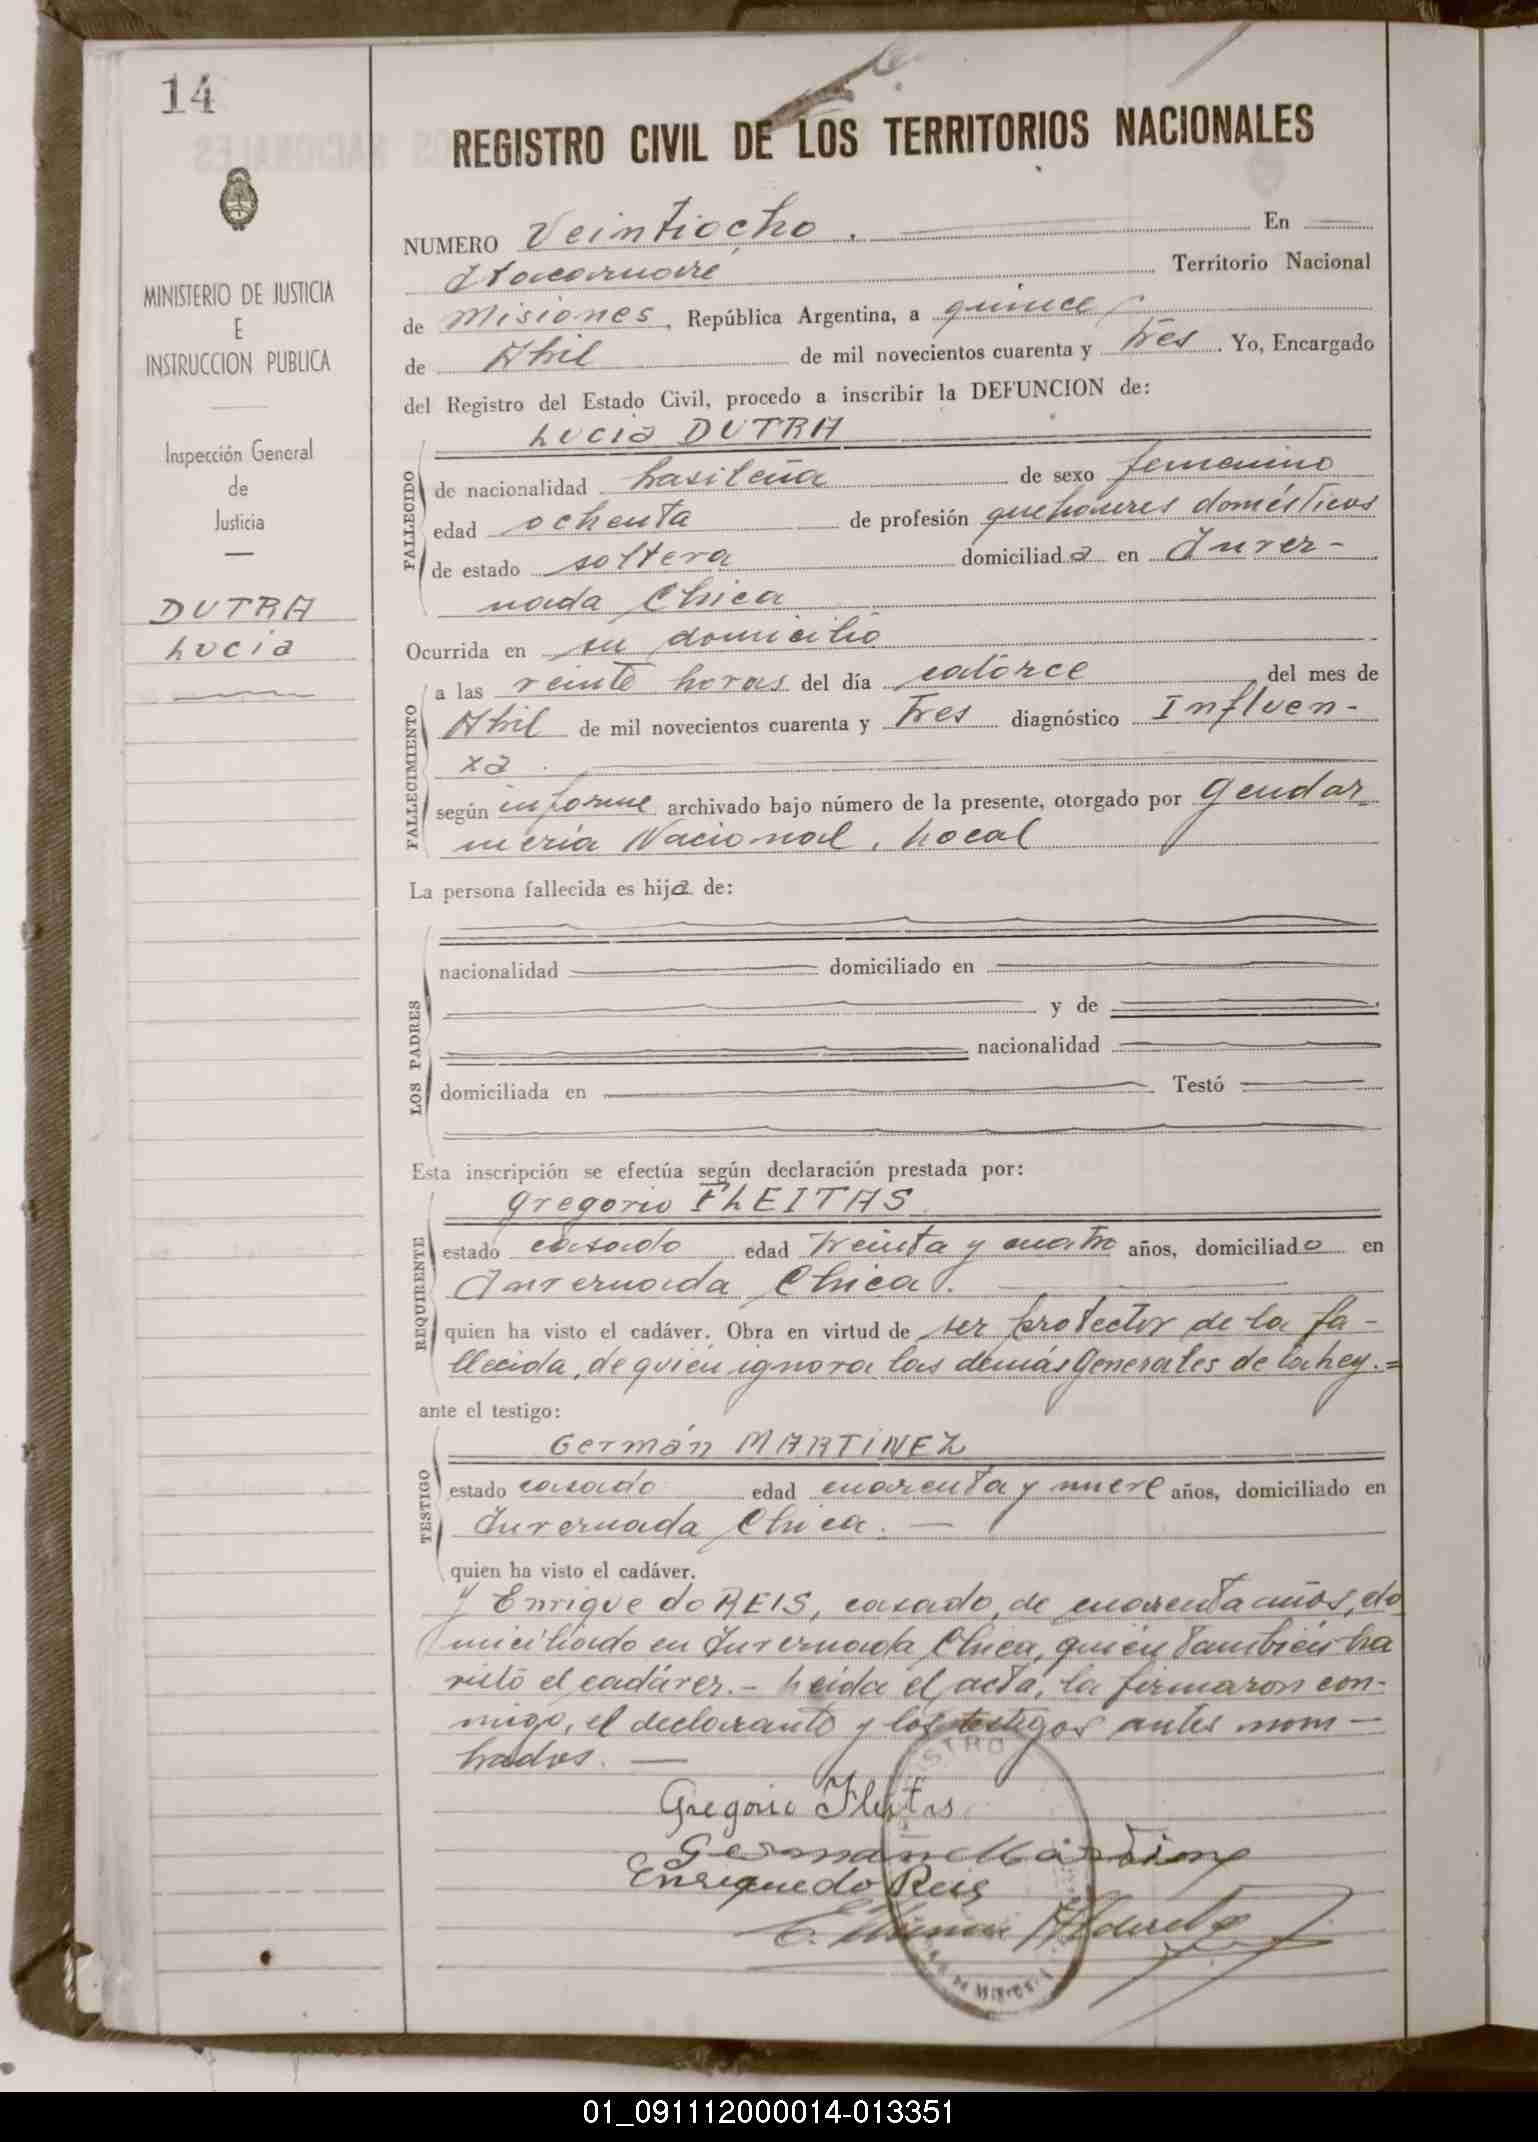 14
REGISTRO CIVIL DE LOS TERRITORIOS NACIONALES
MINISTERIO DE JUSTICIA
E
INSTRUCCION PUBLICA
Inspección General
de
Justicia
DUTRA
Lucia
NUMERO Veintiocho. En
Itacaruaré Territorio Nacional
de Misiones, República Argentina, a quince
de Abril de mil novecientos cuarenta y tres. Yo, Encargado
del Registro del Estado Civil, procedo a inscribir la DEFUNCION de:
Lucia DUTRA
FALLECIDO
de nacionalidad brasileña de sexo femenino
edad ochenta de profesión quehaceres domésticos
de estado soltera domiciliada en Inver-
nada Chica
Ocurrida en su domicilio
FALLECIMIENTO
a las veinte horas del día catorce del mes de
Abril de mil novecientos cuarenta y tres diagnóstico Influen-
za.
según informe archivado bajo número de la presente, otorgado por Gendar
mería Nacional, Local
La persona fallecida es hija de:
LOS PADRES
nacionalidad domiciliado en
y de
nacionalidad
domiciliada en Testó
Esta inscripción se efectúa según declaración prestada por:
Gregorio FLEITAS
REQUIRENTE
estado casado edad treinta y cuatro años, domiciliado en
Invernada Chica.
quien ha visto el cadáver. Obra en virtud de ser protector de la fa-
llecida, de quien ignora las demás Generales de la Ley.=
ante el testigo:
Germán MARTINEZ
TESTIGO
estado casado edad cuarenta y nueve años, domiciliado en
Invernada Chica. —
quien ha visto el cadáver.
y Enrique do REIS, casado, de cuarenta años, do
miciliado en Invernada Chica, quien también ha
visto el cadáver.- Leída el acta, la firmaron con-
migo, el declarante y los testigos antes nom-
brados. —
Gregorio Fleitas
German Martinez
Enrique do Reis
01_091112000014-013351